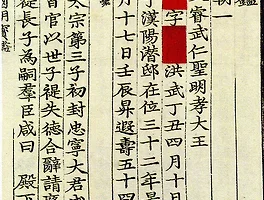 鑑
朝一
睿武仁聖明孝大王
字 洪武丁丑四月十
于漢陽潛邸在位三十二年景
月十七日壬辰昇遐壽五十四
太宗第三子初封忠寧大君
百官以世子禔失德合辭請
從長子為嗣羣臣咸曰 殿
國朝寶鑑